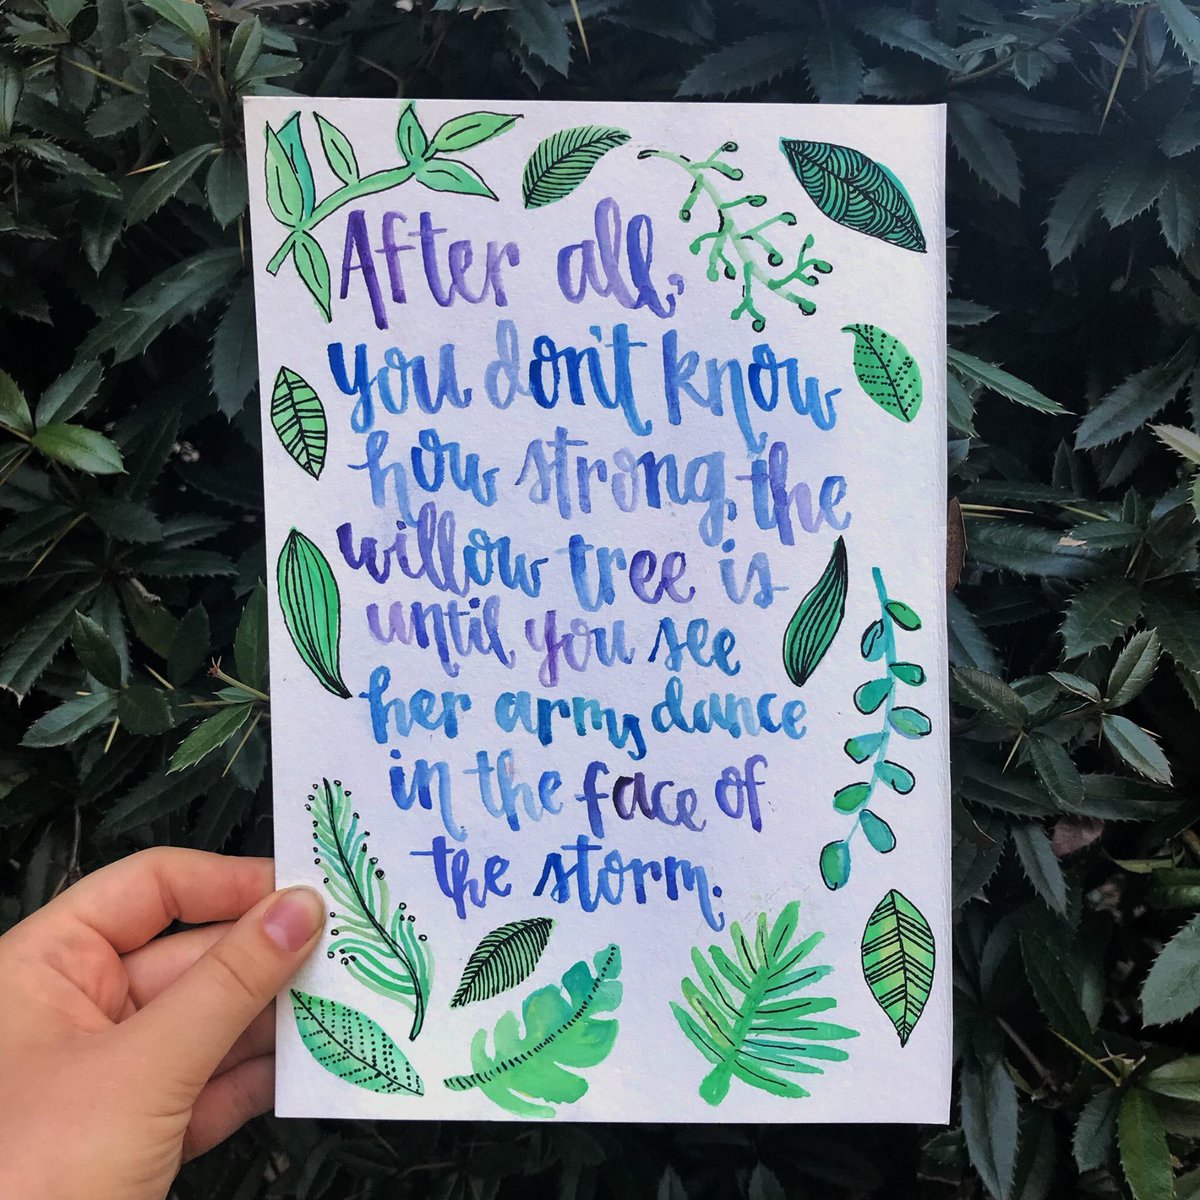 After all,
you don't know
how strong the
willow tree is
until you see
her arms dance
in the face of
the storm.